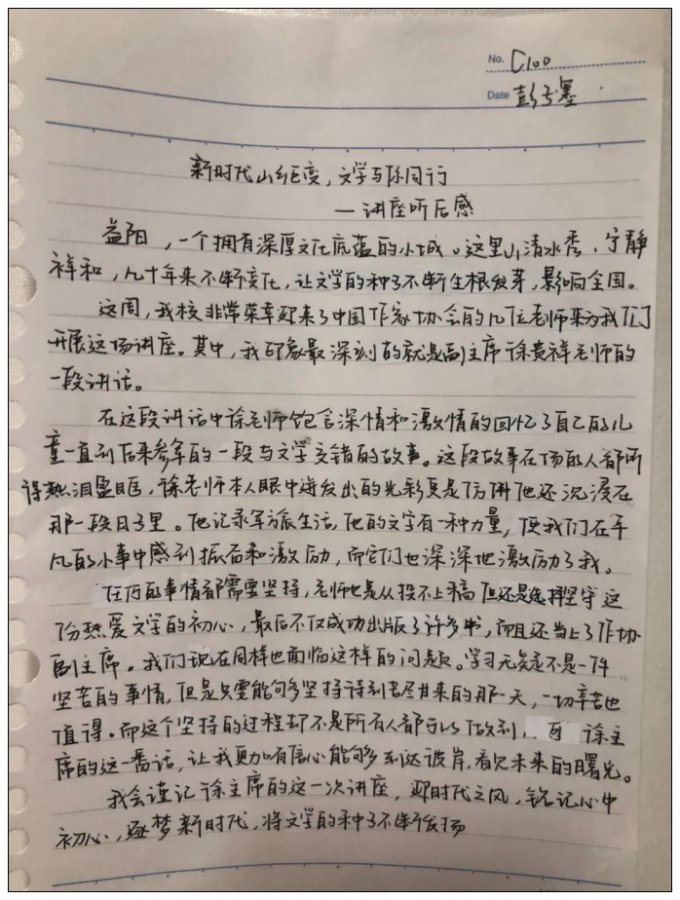 No. C100
Date 彭子墨
新时代山乡巨变，文学与你同行
— 讲座听后感
益阳，一个拥有深厚文化底蕴的小城。这里山清水秀，宁静
祥和，几十年来不断变化，让文学的种子不断生根发芽，影响全国。
这周，我校非常荣幸迎来了中国作家协会的几位老师来为我们
开展这场讲座。其中，我印象最深刻的就是副主席徐贵祥老师的
一段讲话。
在这段讲话中徐老师饱含深情和激情的回忆了自己的儿
童一直到后来参军的一段与文学交错的故事。这段故事在场的人都听
得热泪盈眶，徐老师本人眼中迸发出的光彩更是仿佛他还沉浸在
那一段日子里。他记录军旅生活，他的文字有一种力量，使我们在平
凡的小事中感到振奋和激励，而它们也深深地激励了我。
任何的事情都需要坚持，老师也是从投不上稿但还是选择坚守这
份热爱文学的初心，最后不仅成功出版了许多书，而且还当上了作协
副主席。我们现在同样也面临这样的问题。学习无疑不是一件
坚苦的事情，但是只要能够多坚持待到苦尽甘来的那一天，一切辛苦也
值得。而这个坚持的过程却不是所有人都可以做到，而徐主
席的这一番话，让我更加有信心能够到达彼岸，看见未来的曙光。
我会谨记徐主席的这一次讲座，迎时代之风，铭记心中
初心，逐梦新时代，将文学的种子不断发扬